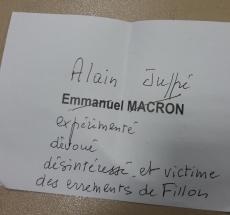 Alain Juppé
Emmanuel MACRON
expérimenté
dévoué
désintéressé et victime
des errements de Fillon